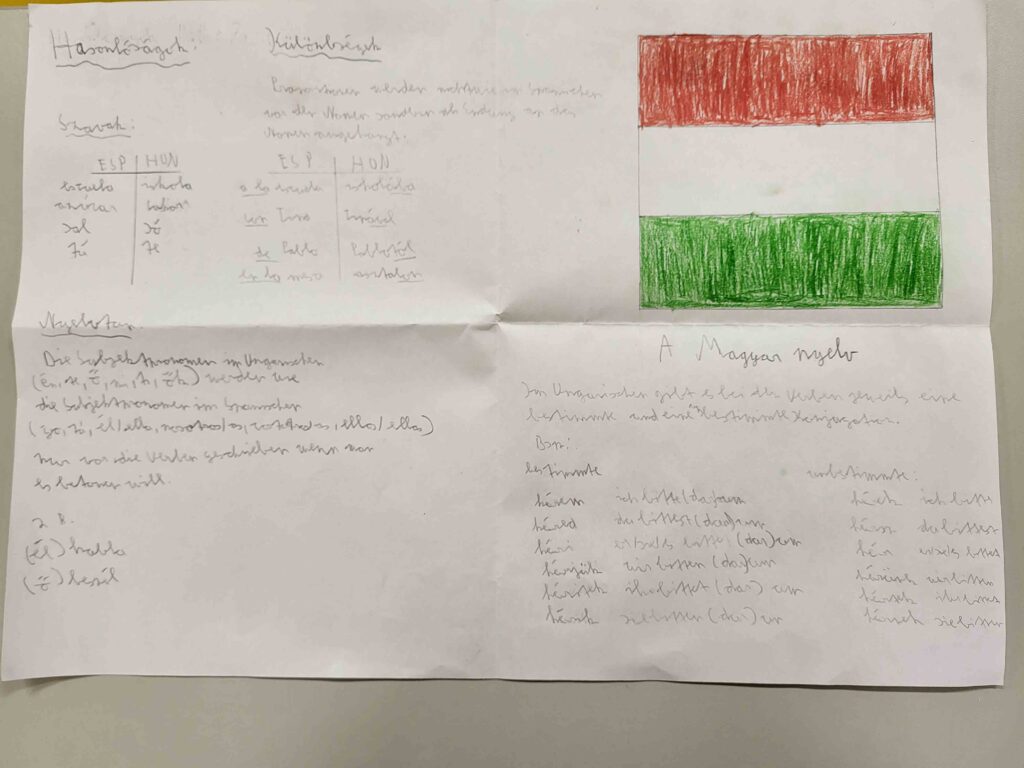 Hasonlóságok:
Szavak:
ESP | HUN
escuela | iskola
azúcar | cukor
sal | só
Tú | Te
Különbségek
werden nicht wie im Spanischen
vor den Nomen sondern als Endung an die
Nomen angehängt.
ESP | HUN
a la escuela | iskolába
con Tina | Tinával
de Pablo | Pablotól
en la mesa | asztalon
Nyelvtan:
Die Subjektpronomen im Ungarischen
(én, te, ő, mi, ti, ők) werden wie
die Subjektpronomen im Spanischen
(yo, tú, él/ella, nosotros/as, vosotros/as, ellos/ellas)
nur vor die Verben geschrieben wenn man
es betonen will.
z B.
(él) habla
(ő) beszél
A Magyar nyelv
Im Ungarischen gibt es bei den Verben jeweils eine
bestimmte und eine unbestimmte Konjugation.
Bsp:
bestimmte unbestimmte:
kérem ich bitte (dar)um kérek ich bitte
kéred du bittest (dar)um kérsz du bittest
kéri er/sie/es bittet (dar)um kér er/sie/es bittet
kérjük wir bitten (dar)um kérünk wir bitten
kéritek ihr bittet (dar)um kértek ihr bittet
kérik sie bitten (dar)um kérnek sie bitten